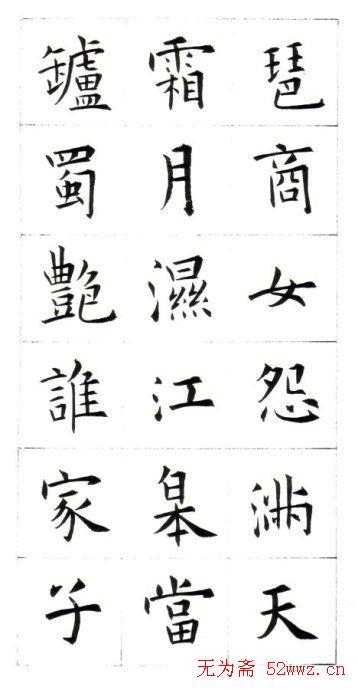 琶商女怨滿天
霜月濕江皋當
罏蜀艶誰家子
无为斋 52wwz.cn